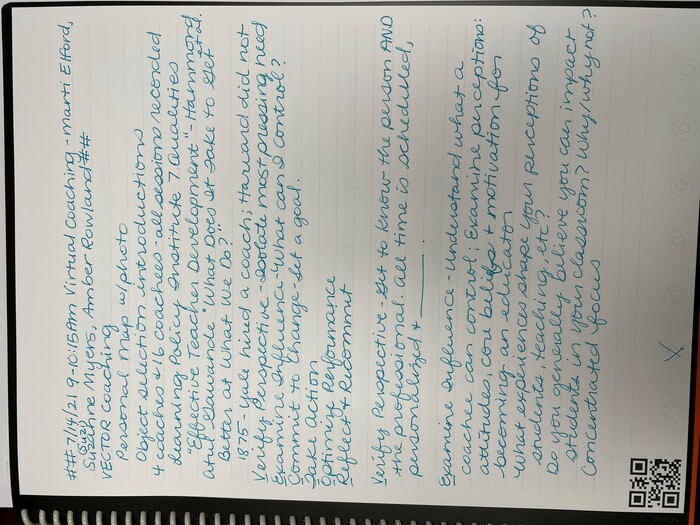 ## 7/14/21 9-10:15Am Virtual Coaching - Marti Elford,
Suzi
Myers, Amber Rowland ##
VECTOR Coaching
Personal Map w/photo
Object selection introductions
4 coaches & 16 coachees - all sessions recorded
Learning Policy Institute 7 Qualities
"Effective Teacher Development" - Hammond
et al.
Atul Gawande "What Does it take to Get
Better at What We Do?"
1875 - Yale hired a coach; Harvard did not
Verify Perspective - isolate most pressing need
Examine Influence "What can I control?
Commit to Change - set a goal.
Take action
Optimize Performance
Reflect & Recommit
Verify Perspective - get to know the person AND
the professional. All time is scheduled,
personalized & ______.
Examine Influence - Understand what a
coachee can control; Examine perceptions:
attitudes, core beliefs & motivation for
becoming an educator
What experiences shape your perceptions of
students, teaching, etc?
Do you generally believe you can impact
students in your classroom? Why/why not?
Concentrated focus
X